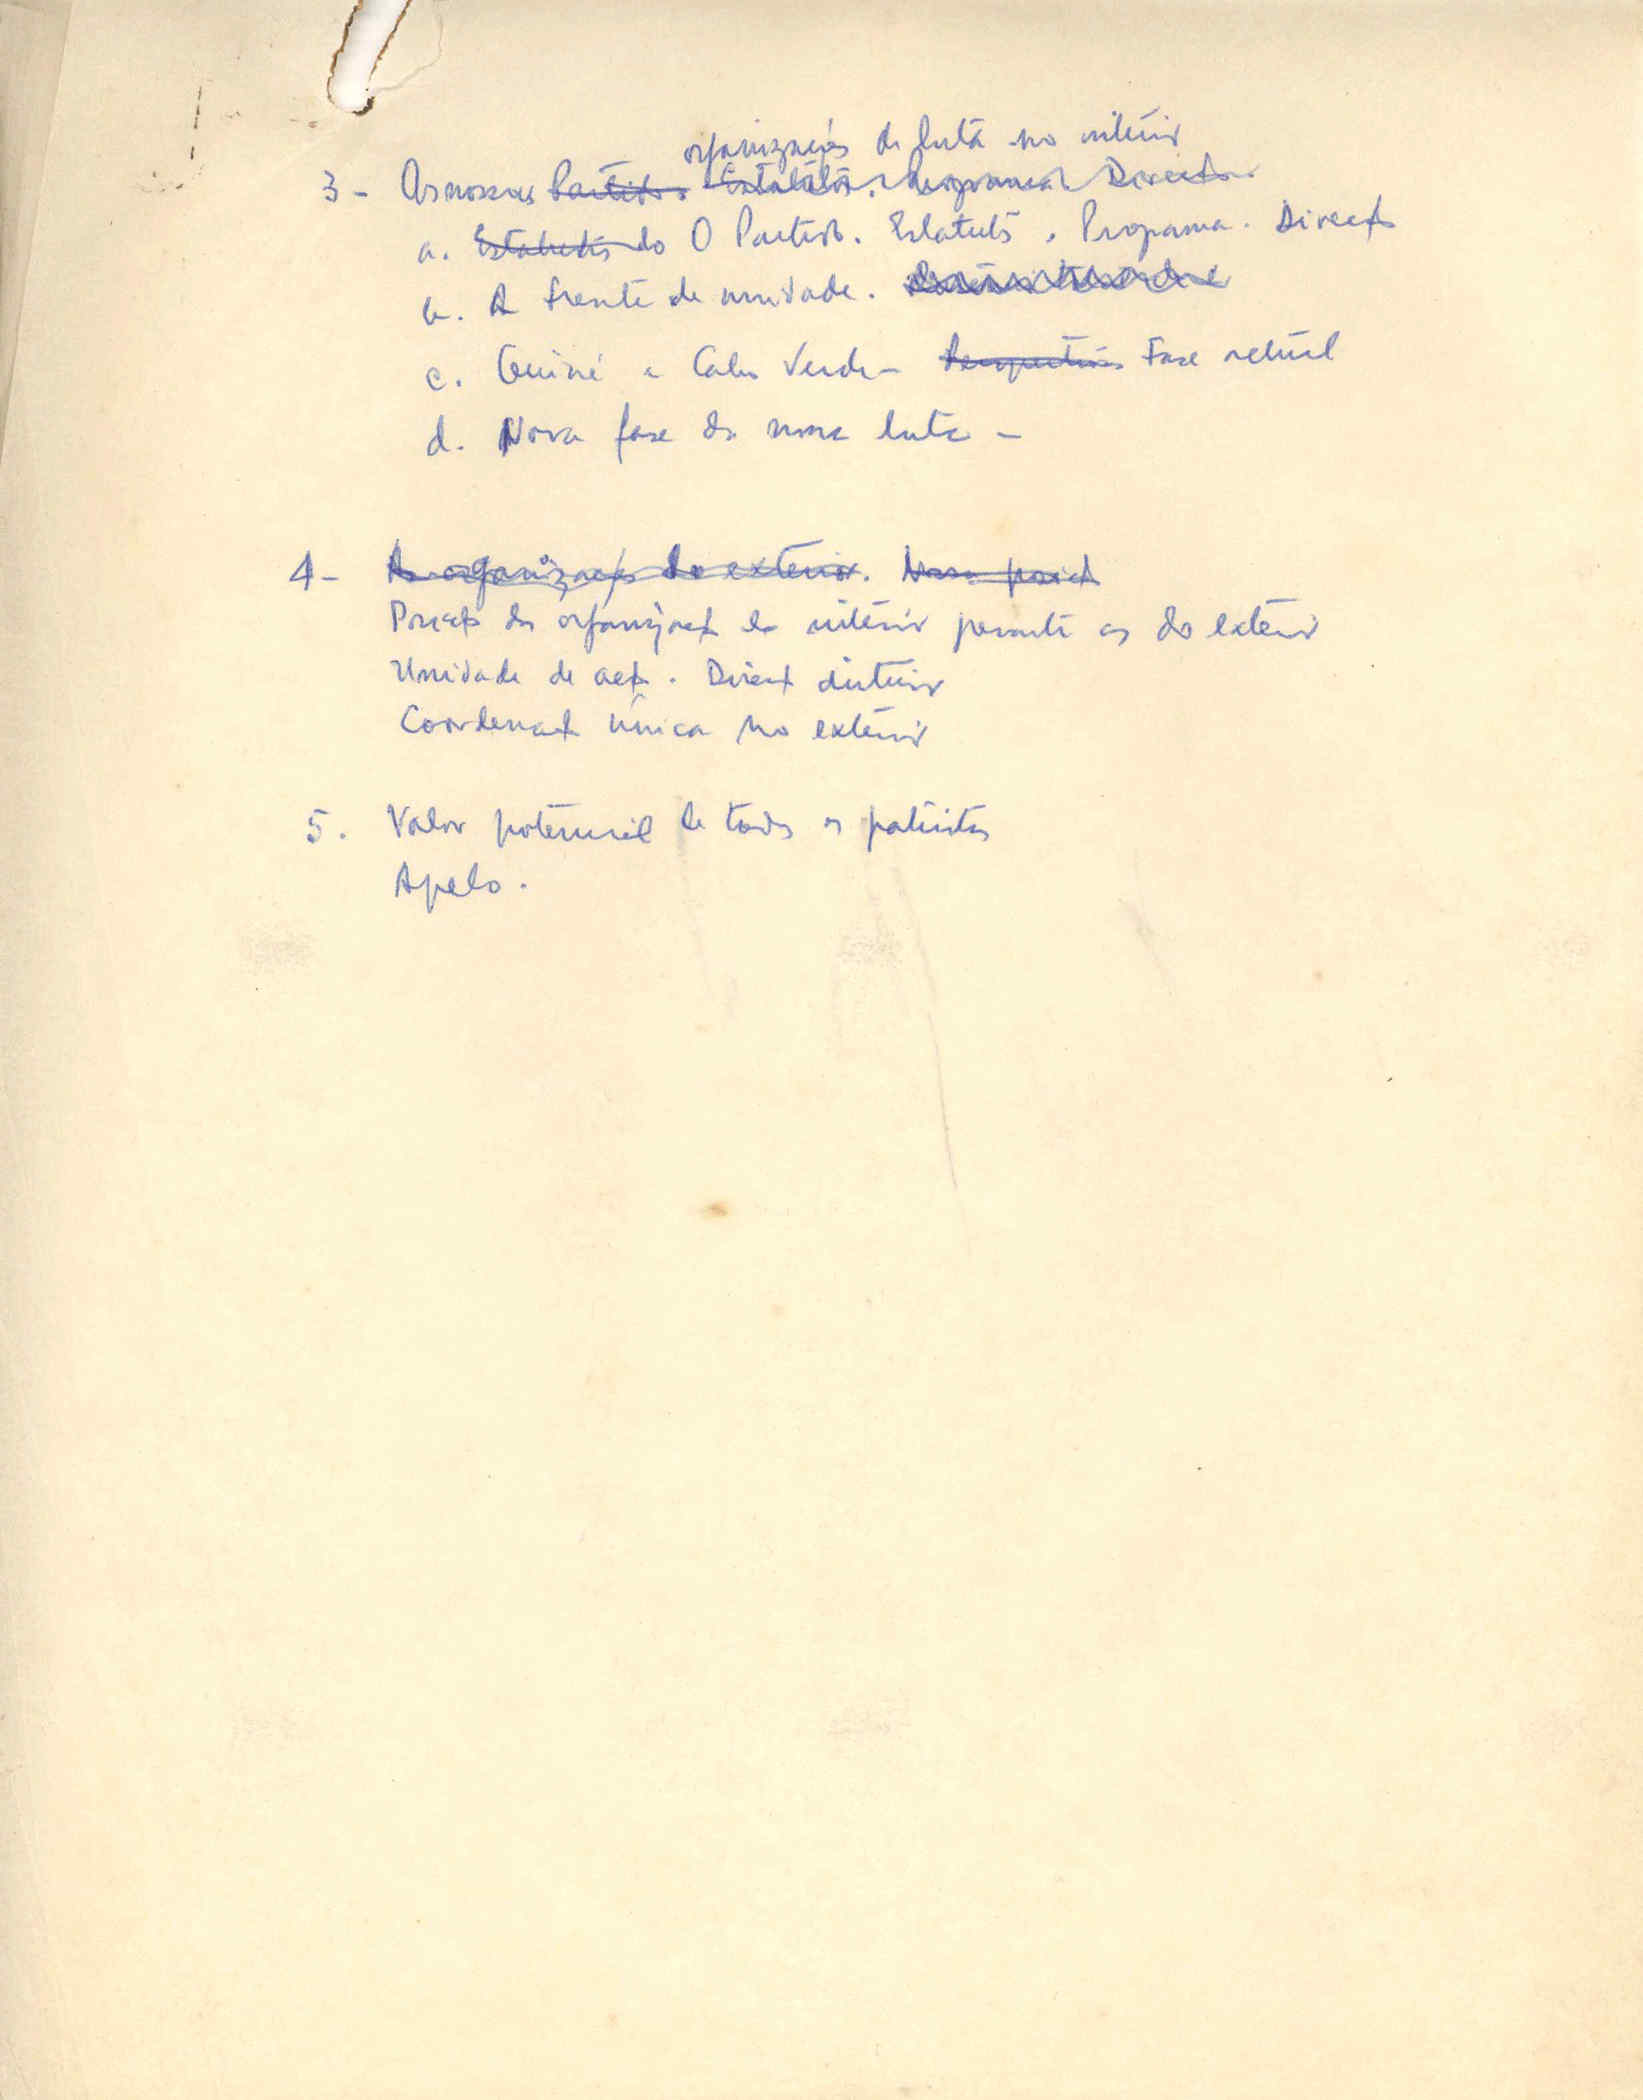 organizações de luta no interior
3 - As nossas Partido. Estatutos. Programa Direcção
a. Estatutos do O Partido. Estatutos. Programa. Direcção
b. A frente de unidade.
c. Guiné e Cabo Verde - Perspectivas Fase actual
d. Nova fase da nossa luta -
4 - As organizações do exterior. Nossa posição
Posição das organizações do interior perante as do exterior
Unidade de acção. Direcção interior
Coordenação única no exterior
5. Valor potencial de todos os patriotas
Apelo.